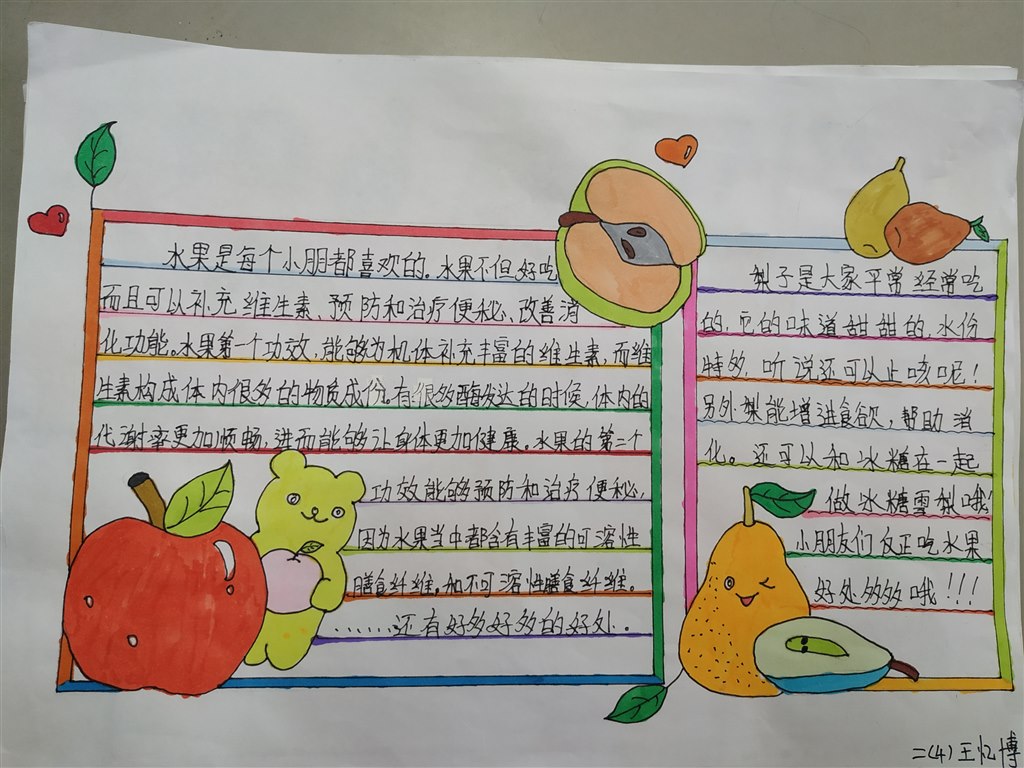 水果是每个小朋都喜欢的。水果不但好吃
而且可以补充维生素、预防和治疗便秘、改善消
化功能。水果第一个功效，能够为机体补充丰富的维生素，而维
生素构成体内很多的物质成份。有很多酶发达的时候，体内的
代谢率更加顺畅，进而能够让身体更加健康。水果的第二个
功效能够预防和治疗便秘，
因为水果当中都含有丰富的可溶性
膳食纤维。和不可溶性膳食纤维。
......还有好多好多的好处..
梨子是大家平常经常吃
的，它的味道甜甜的，水份
特多，听说还可以止咳呢！
另外梨能增进食欲，帮助消
化。还可以和冰糖在一起
做冰糖雪梨哦！
小朋友们反正吃水果
好处多多哦！！！
二(4)王忆博